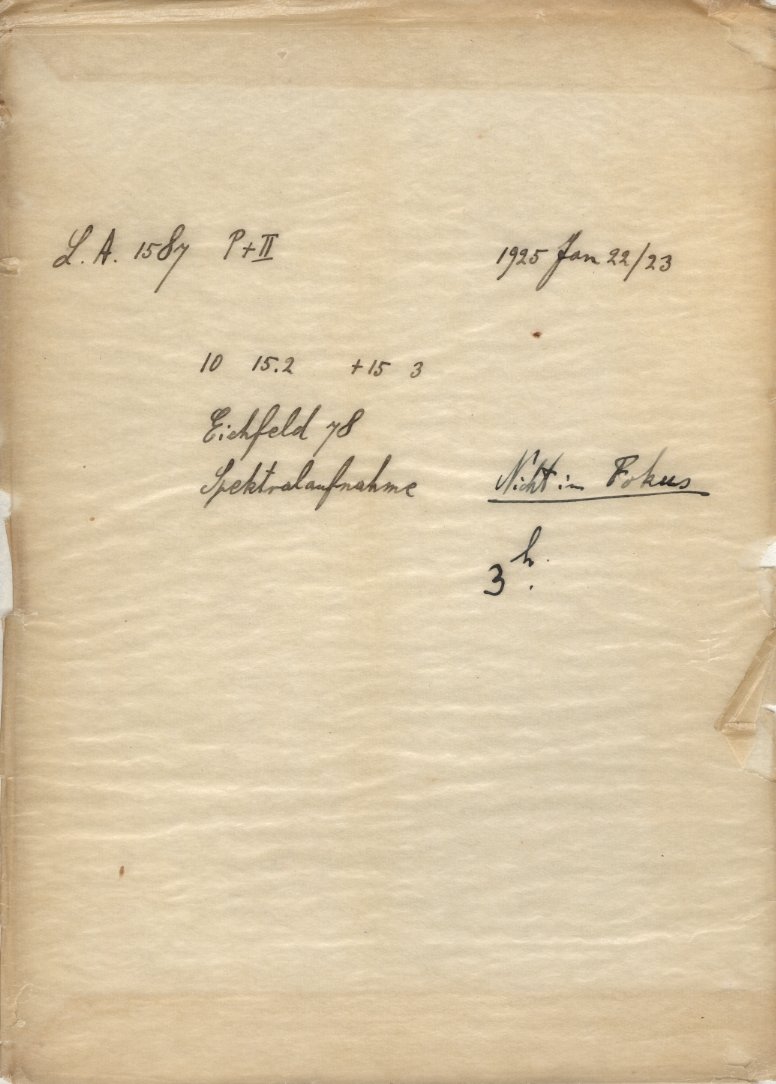 L. A. 1587 P+II 1925 Jan 22/23
10 15.2 +15 3
Eichfeld 78
Spektralaufnahme Nicht im Fokus
3h.